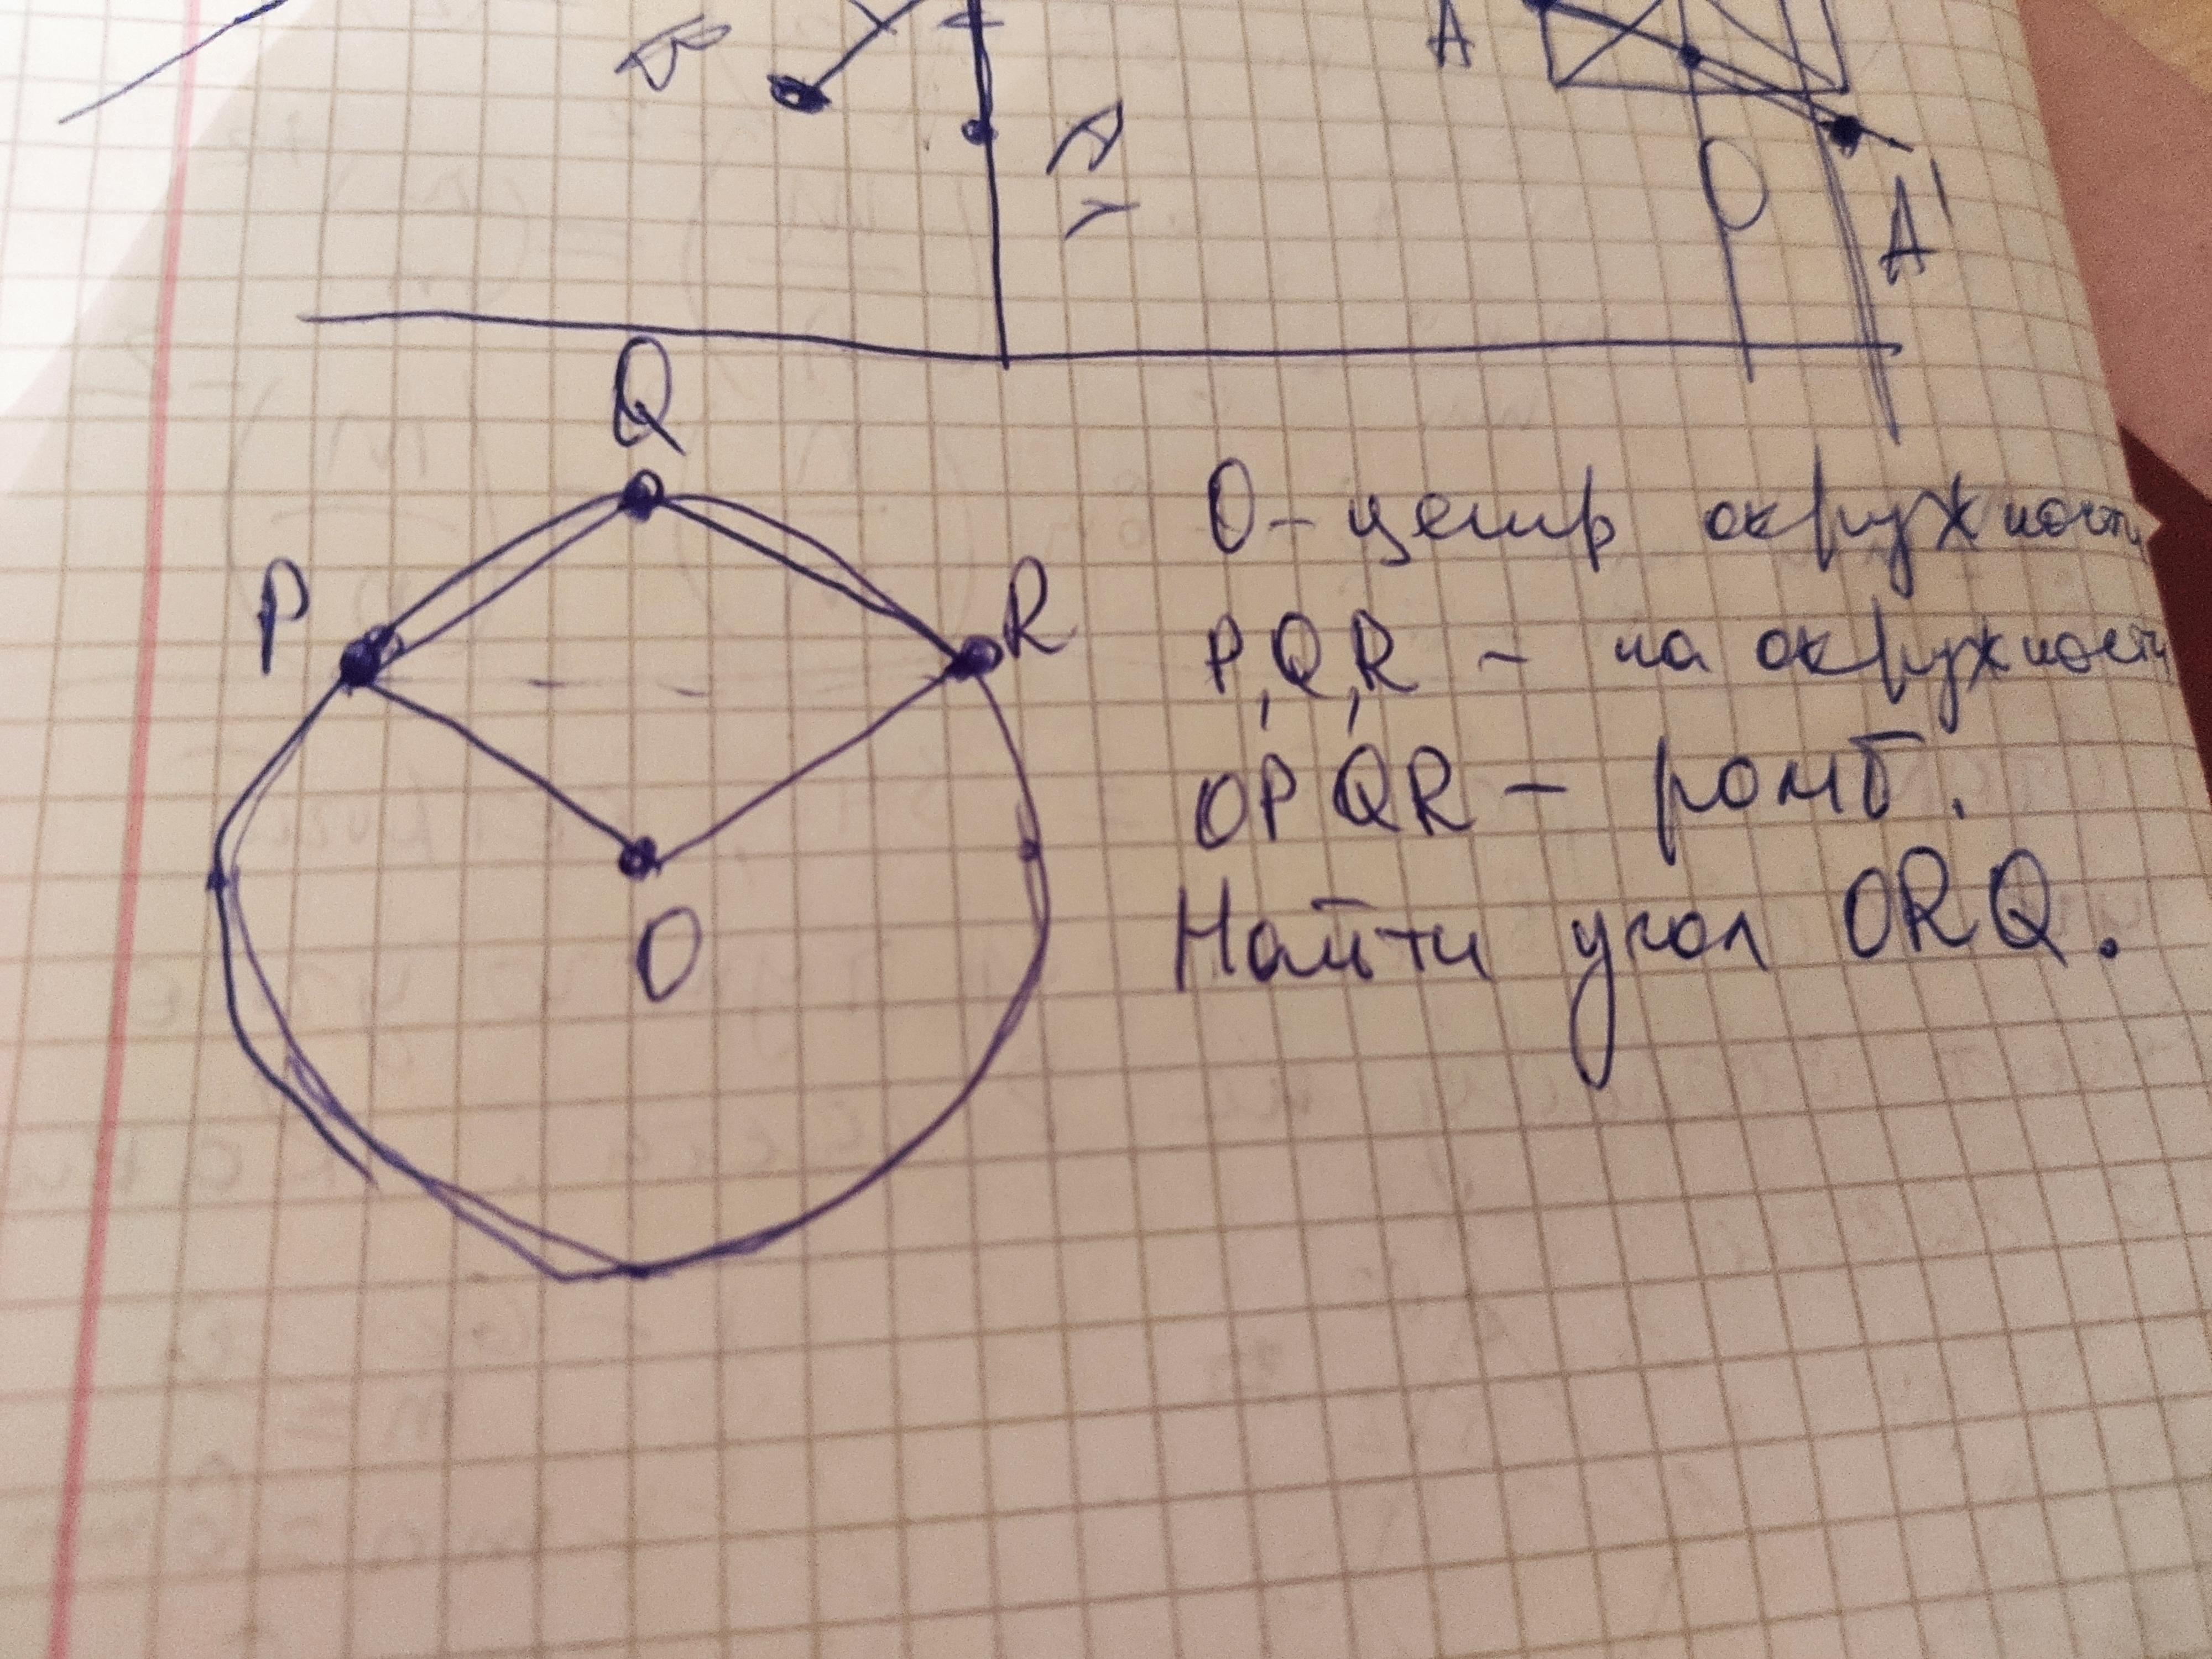 A
A'
Q
P
R
O
O - центр окружности
P, Q, R - на окружности
OPQR - ромб.
Найти угол ORQ.